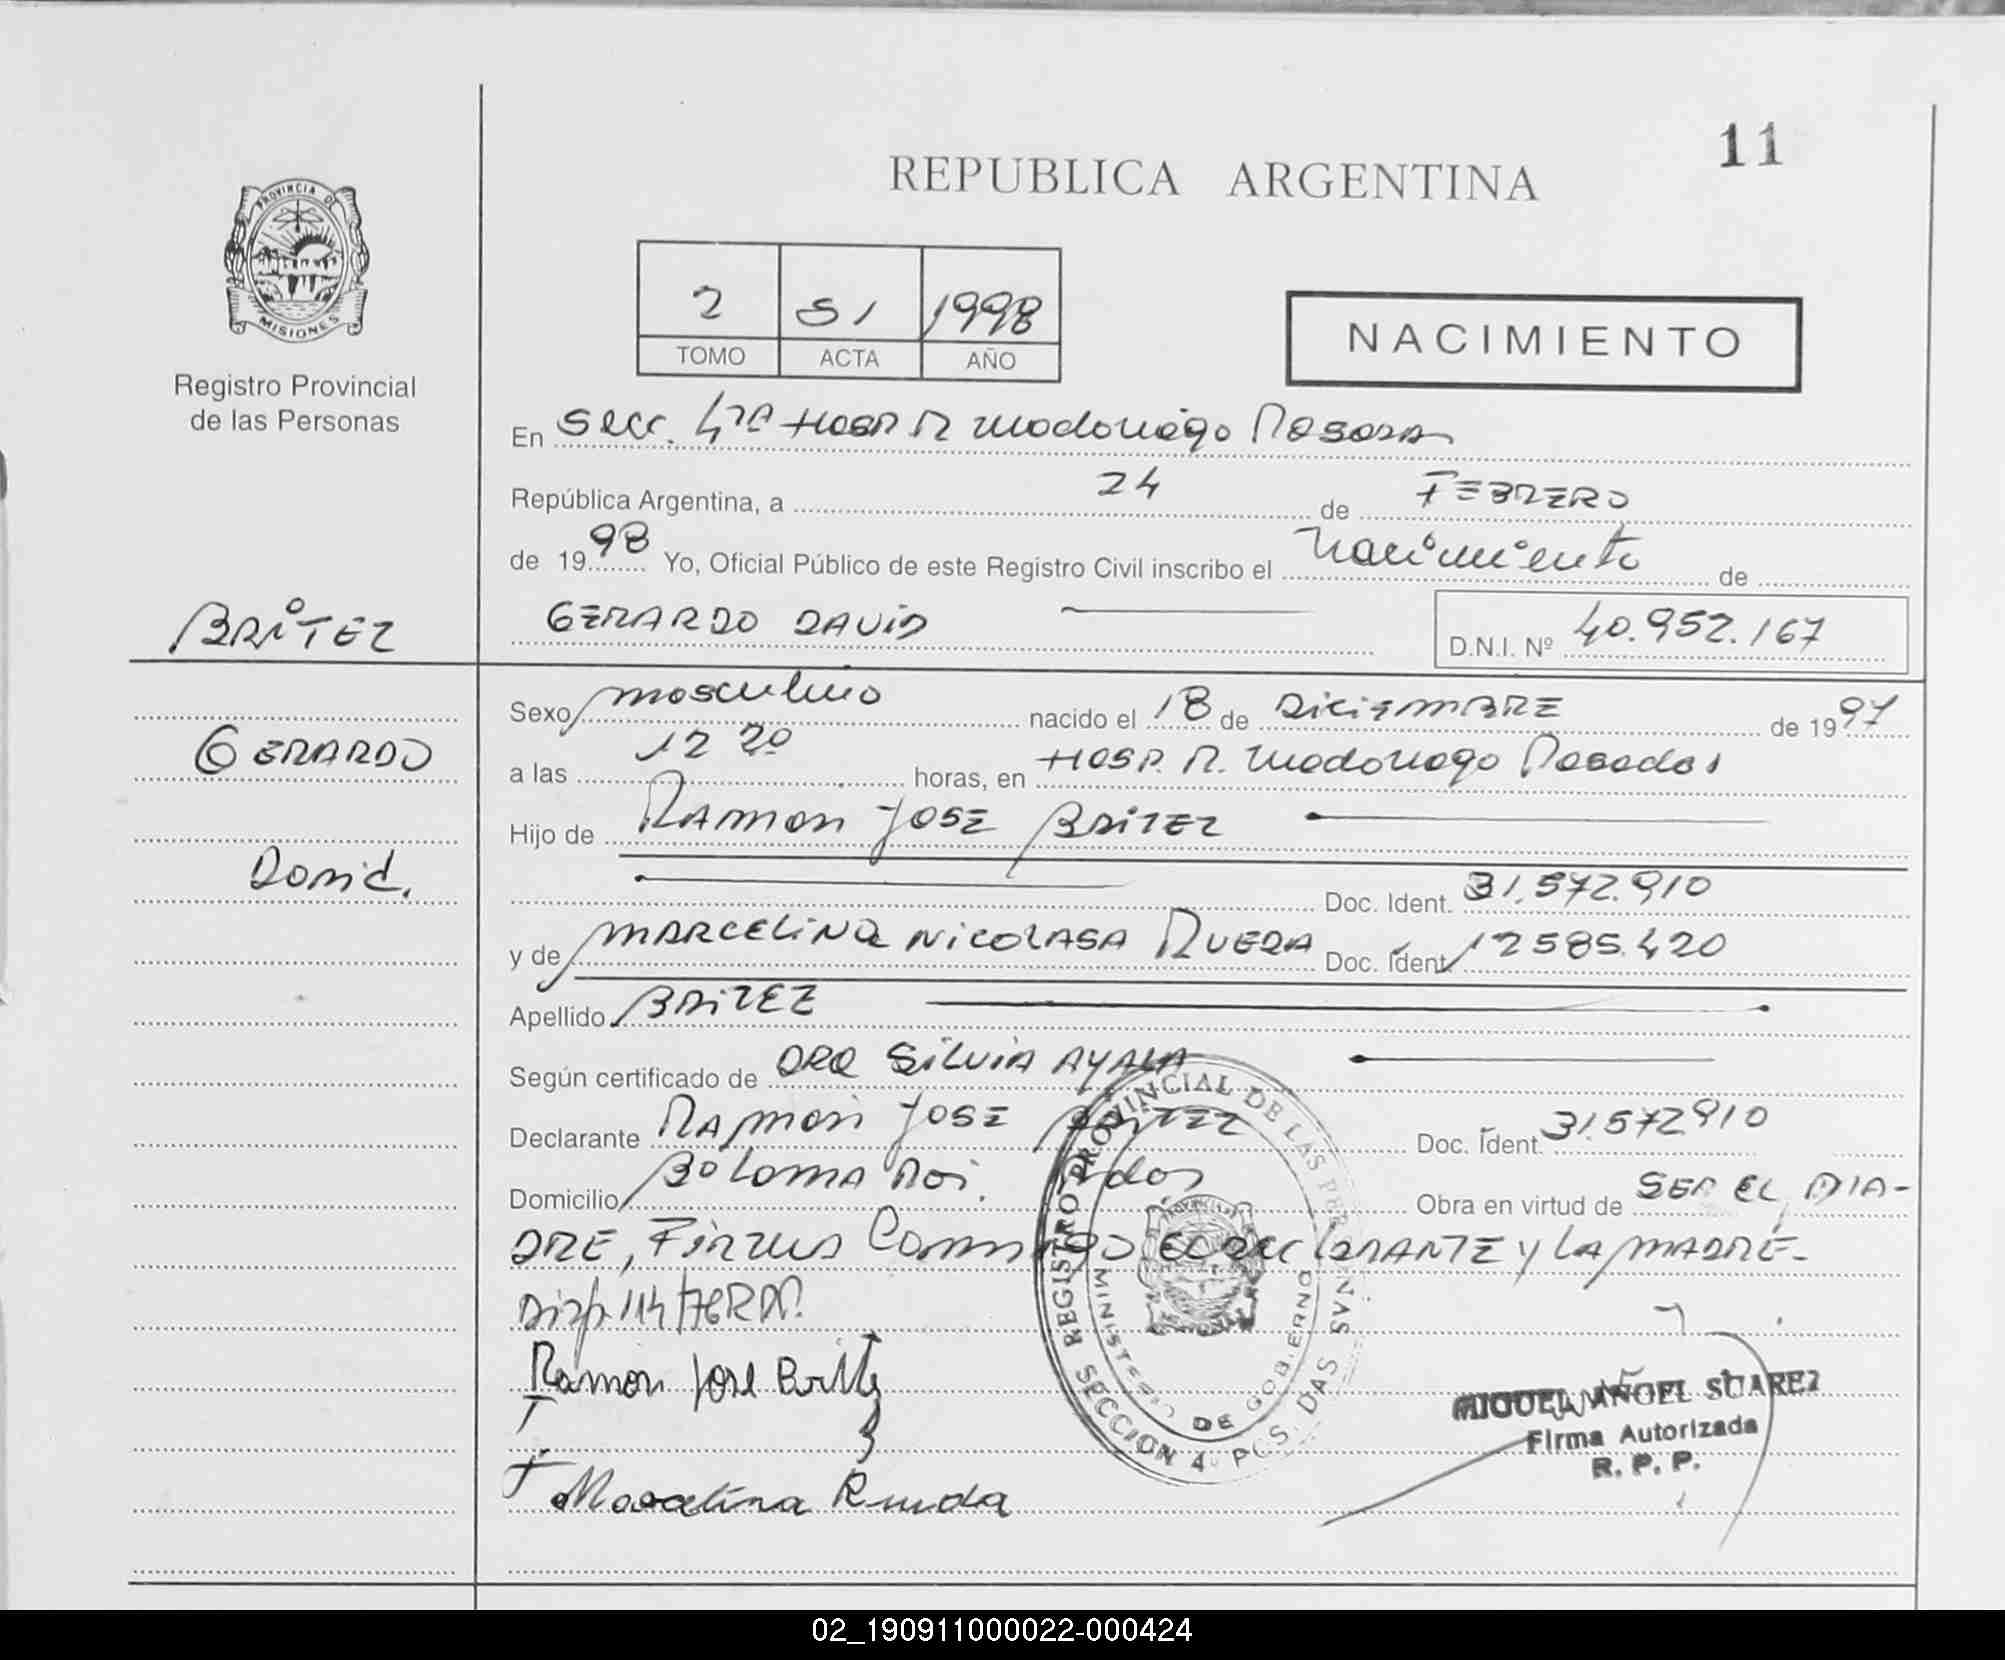 11
REPUBLICA ARGENTINA
PROVINCIA DE
MISIONES
Registro Provincial
de las Personas
2 51 1998
TOMO ACTA AÑO
NACIMIENTO
En Secc. 4ta Hosp R Madariaga Posadas
República Argentina, a 24 de FEBRERO
de 1998 Yo, Oficial Público de este Registro Civil inscribo el Nacimiento de
BRITEZ
GERARDO DAVID
D.N.I. Nº 40.952.167
Sexo masculino nacido el 18 de DICIEMBRE de 1997
GERARDO
a las 12 20 horas, en HOSP. R. Madariaga Posadas
Hijo de RAMON JOSE BRITEZ
David.
Doc. Ident. 31.572.910
y de MARCELINA NICOLASA RUEDA Doc. Ident. 12585.420
Apellido BRITEZ
Según certificado de DRA SILVIA AYALA
Declarante RAMON JOSE BRITEZ Doc. Ident. 31.572910
Domicilio Bº LOMA Pdas Obra en virtud de SER EL PA-
DRE, FIRMAN CONMIGO EL DECLARANTE Y LA MADRE-
Disp. 114/76
Ramon José Britez
Marcelina Rueda
REGISTRO PROVINCIAL DE LAS PERSONAS
MINISTERIO DE GOBIERNO
SECCION 4º PCS. DAS
MIGUEL ANGEL SUAREZ
Firma Autorizada
R. P. P.
02_190911000022-000424